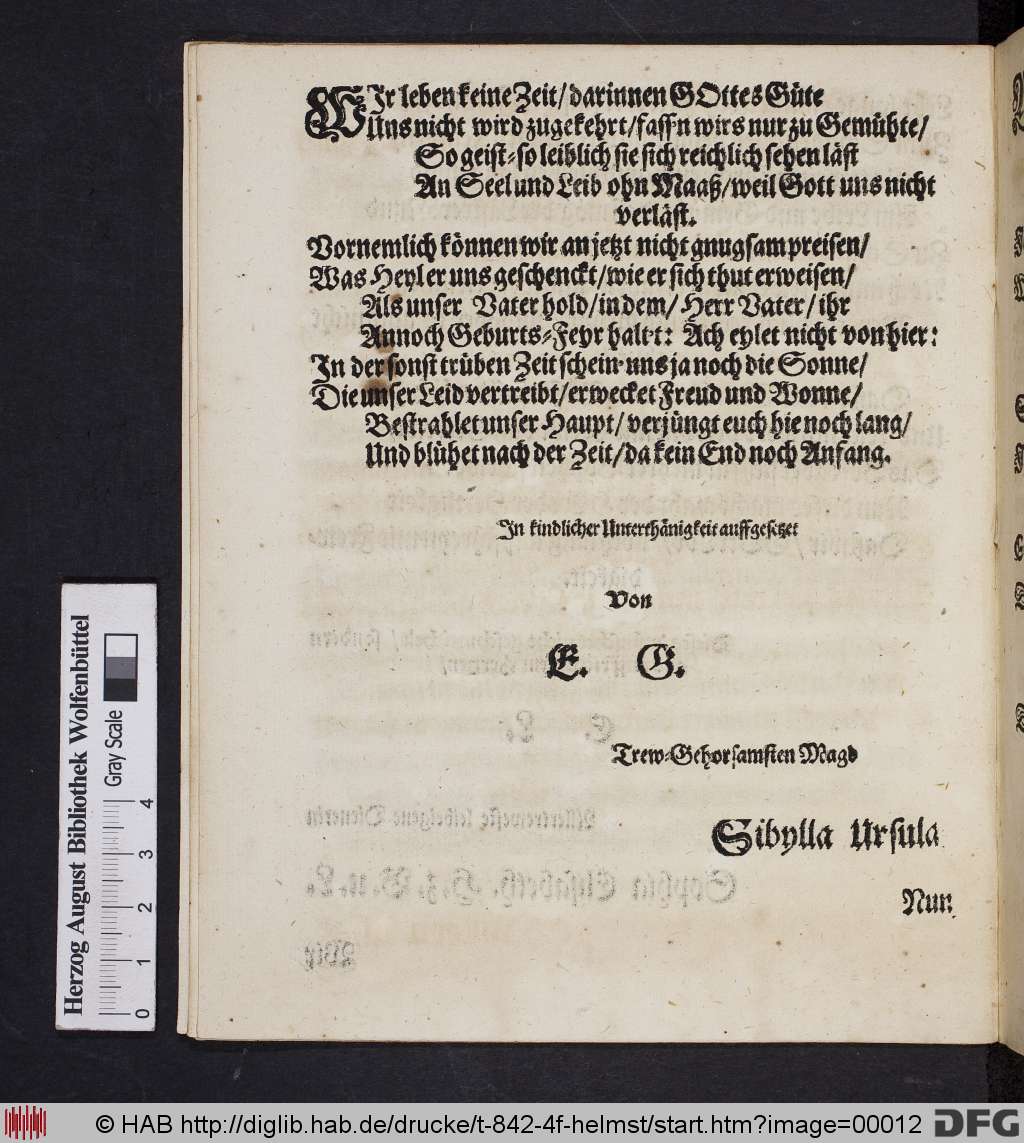 WIr leben keine Zeit/darinnen GOttes Güte
Uns nicht wird zugekehrt/fass'n wirs nur zu Gemühte/
So geist-so leiblich sie sich reichlich sehen läst
An Seel und Leib ohn Maaß/weil Gott uns nicht
verläst.
Vornemlich können wir an jetzt nicht gnugsam preisen/
Was Heyl er uns geschenckt/wie er sich thut erweisen/
Als unser Vater hold/in dem/Herr Vater/ihr
Annoch Geburts-Feyr halt't: Ach eylet nicht von hier:
In der sonst trüben Zeit schein uns ja noch die Sonne/
Die unser Leid vertreibt/erwecket Freud und Wonne/
Bestrahlet unser Haupt/verjüngt euch hie noch lang/
Und blühet nach der Zeit/da kein End noch Anfang.
In kindlicher Unterthänigkeit auffgesetzet
Von
E. G.
Trew-Gehorsamsten Magd
Sibylla Ursula
Nun
Herzog August Bibliothek Wolfenbüttel
Gray Scale
0 1 2 3 4
© HAB http://diglib.hab.de/drucke/t-842-4f-helmst/start.htm?image=00012
DFG